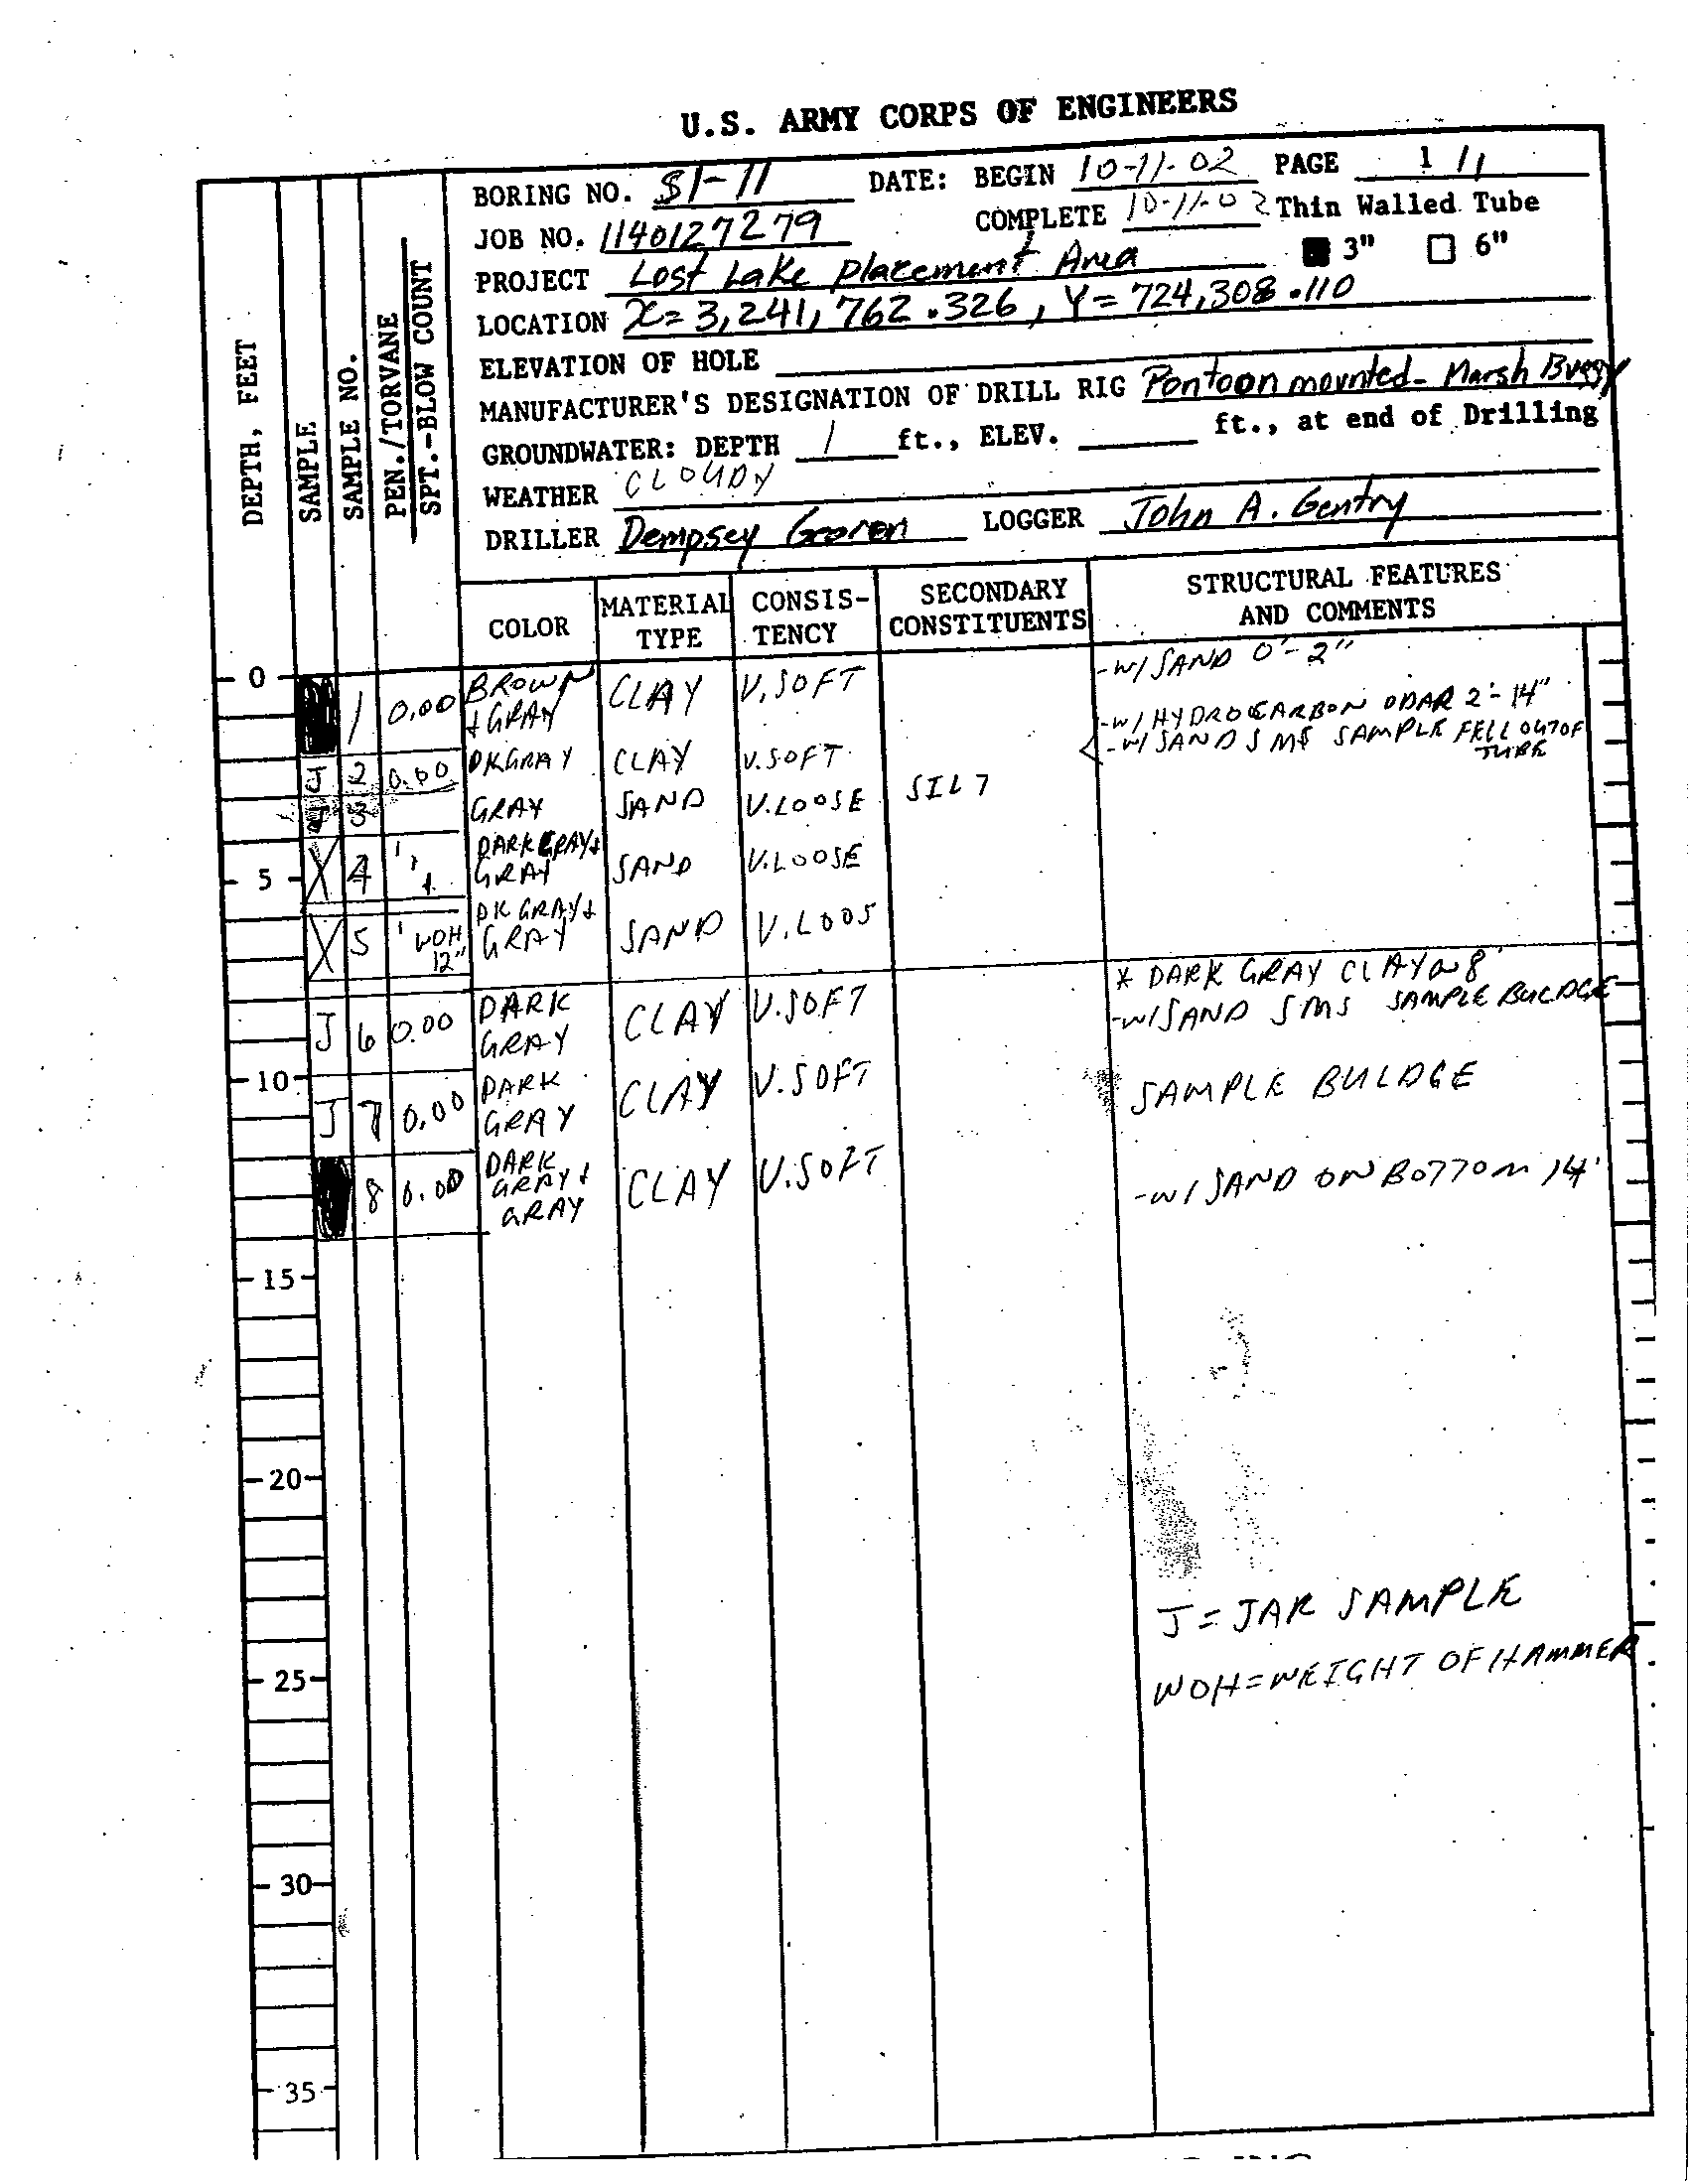 U.S. ARMY CORPS OF ENGINEERS
BORING NO. S1-11 DATE: BEGIN 10-11-02 PAGE 1 / 1
JOB NO. 1140127279 COMPLETE 10-11-02 Thin Walled Tube
PROJECT Lost Lake Placement Area 3" 6"
LOCATION X= 3,241,762.326, Y= 724,308.110
ELEVATION OF HOLE
MANUFACTURER'S DESIGNATION OF DRILL RIG Pontoon mounted- Marsh Buggy
GROUNDWATER: DEPTH 1 ft., ELEV. ft., at end of Drilling
WEATHER CLOUDY
DRILLER Dempsey LOGGER John A. Gentry
DEPTH, FEET
SAMPLE
SAMPLE NO.
PEN./TORVANE
SPT.-BLOW COUNT
COLOR MATERIAL TYPE CONSIS-TENCY SECONDARY CONSTITUENTS STRUCTURAL FEATURES AND COMMENTS
0
1 0.00 BROWN & GRAY CLAY V.SOFT -W/ SAND 0'-2"
-W/ HYDROCARBON ODAR 2'-14"
J 2 0.00 DK GRAY CLAY V.SOFT -W/ SAND SMS SAMPLE FELL OUT OF TUBE
J 3 GRAY SAND V.LOOSE SILT
5
4 1 1 1 DARK GRAY & GRAY SAND V.LOOSE
5 1 WOH 12" DK GRAY & GRAY SAND V.LOOS
* DARK GRAY CLAY @ 8'
J 6 0.00 DARK GRAY CLAY V.SOFT -W/ SAND SMS SAMPLE BULDGE
10
J 7 0.00 DARK GRAY CLAY V.SOFT SAMPLE BULDGE
8 0.00 DARK GRAY & GRAY CLAY V.SOFT -W/ SAND ON BOTTOM 14'
15
20
J = JAR SAMPLE
25
WOH = WEIGHT OF HAMMER
30
35